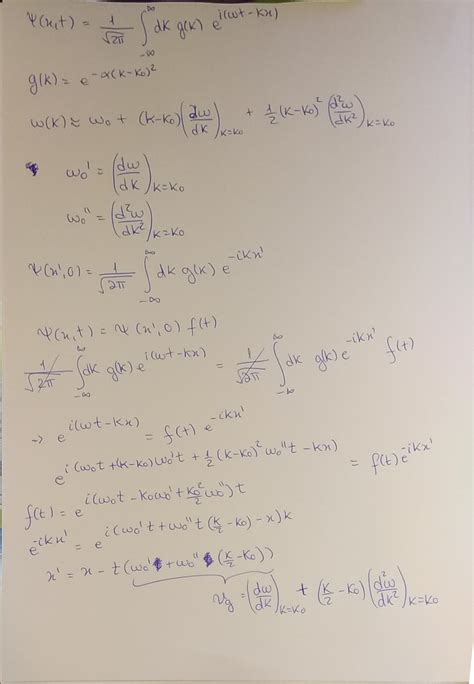 Ψ(x,t) = 1/√2π ∫_{-∞}^{∞} dk g(k) e^{i(ωt-kx)}
g(k) = e^{-α(k-k₀)²}
ω(k) ≈ ω₀ + (k-k₀)(dω/dk)_{k=k₀} + 1/2 (k-k₀)² (d²ω/dk²)_{k=k₀}
ω₀' = (dω/dk)_{k=k₀}
ω₀'' = (d²ω/dk²)_{k=k₀}
Ψ(x',0) = 1/√2π ∫_{-∞}^{∞} dk g(k) e^{-ikx'}
Ψ(x,t) = Ψ(x',0) f(t)
1/√2π ∫_{-∞}^{∞} dk g(k) e^{i(ωt-kx)} = 1/√2π ∫_{-∞}^{∞} dk g(k) e^{-ikx'} f(t)
→ e^{i(ωt-kx)} = f(t) e^{-ikx'}
e^{i(ω₀t+(k-k₀)ω₀'t+1/2(k-k₀)²ω₀''t-kx)} = f(t) e^{-ikx'}
f(t) = e^{i(ω₀t-k₀ω₀'+k₀²/2 ω₀'')t}
e^{-ikx'} = e^{i(ω₀'t+ω₀''t(k/2-k₀)-x)k}
x' = x - t(ω₀' + ω₀''(k/2-k₀))
v_g = (dω/dk)_{k=k₀} + (k/2-k₀)(d²ω/dk²)_{k=k₀}